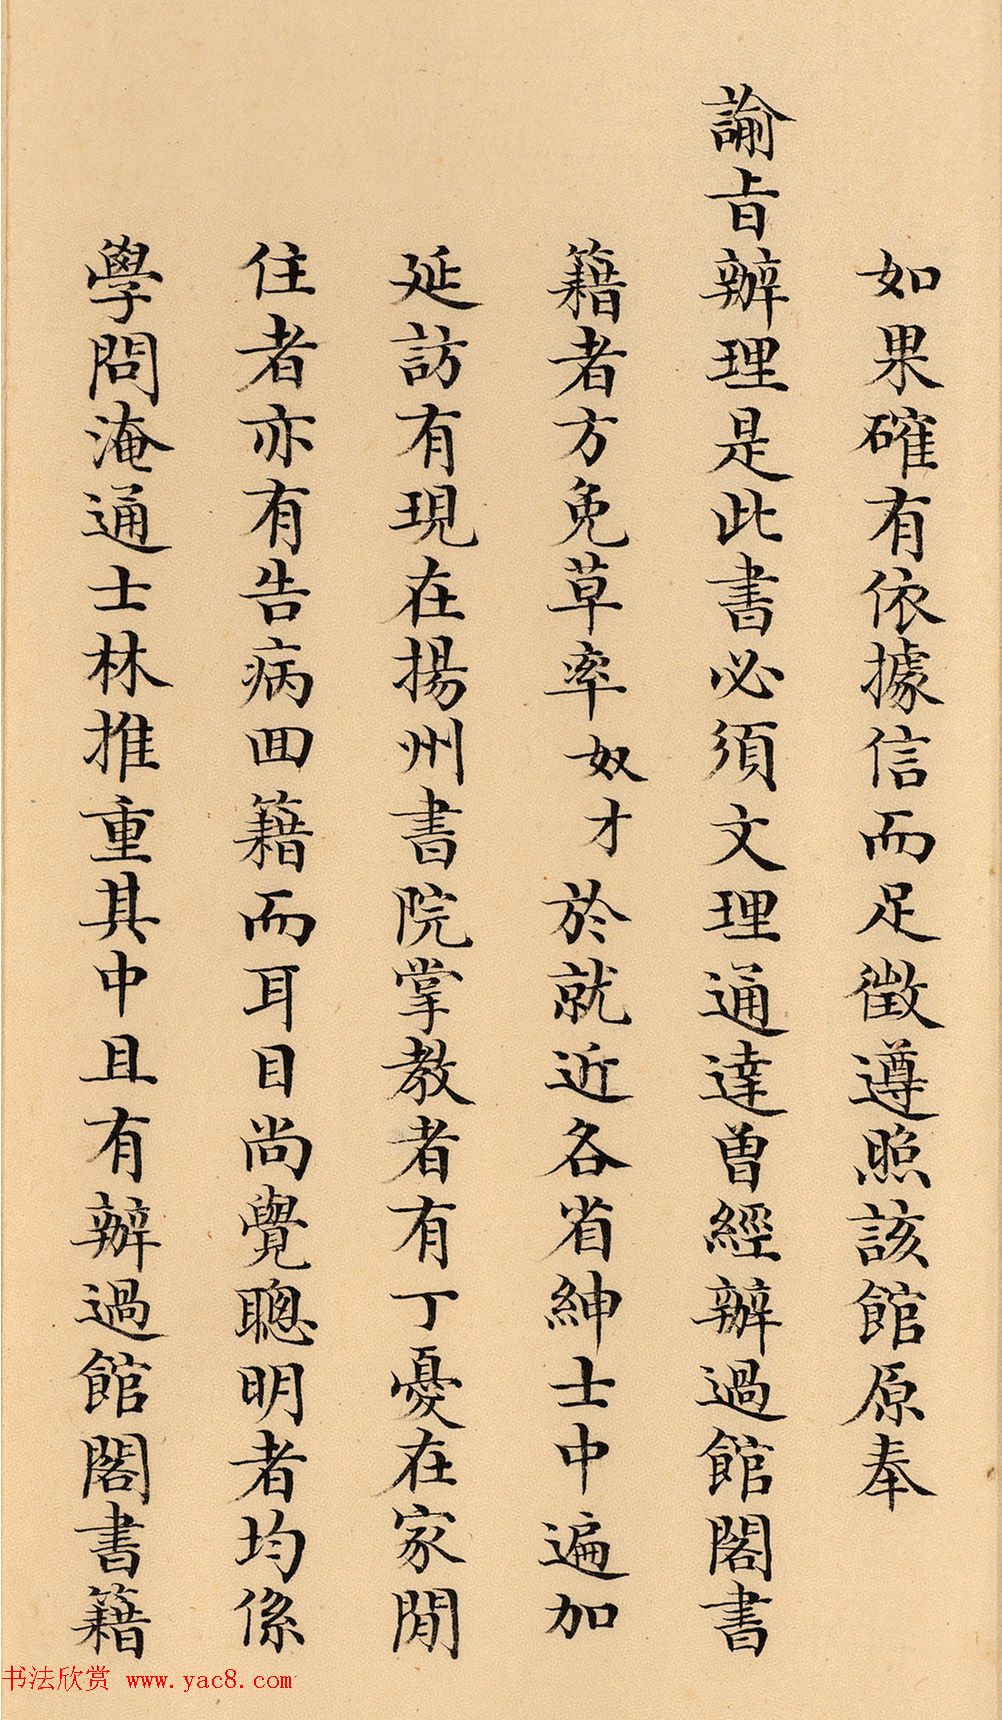 如果確有依據信而足徵遵照該館原奉
諭旨辦理是此書必須文理通達曾經辦過館閣書
籍者方免草率奴才於就近各省紳士中遍加
延訪有現在揚州書院掌教者有丁憂在家閒
住者亦有告病回籍而耳目尚覺聰明者均係
學問淹通士林推重其中且有辦過館閣書籍
书法欣赏 www.yac8.com